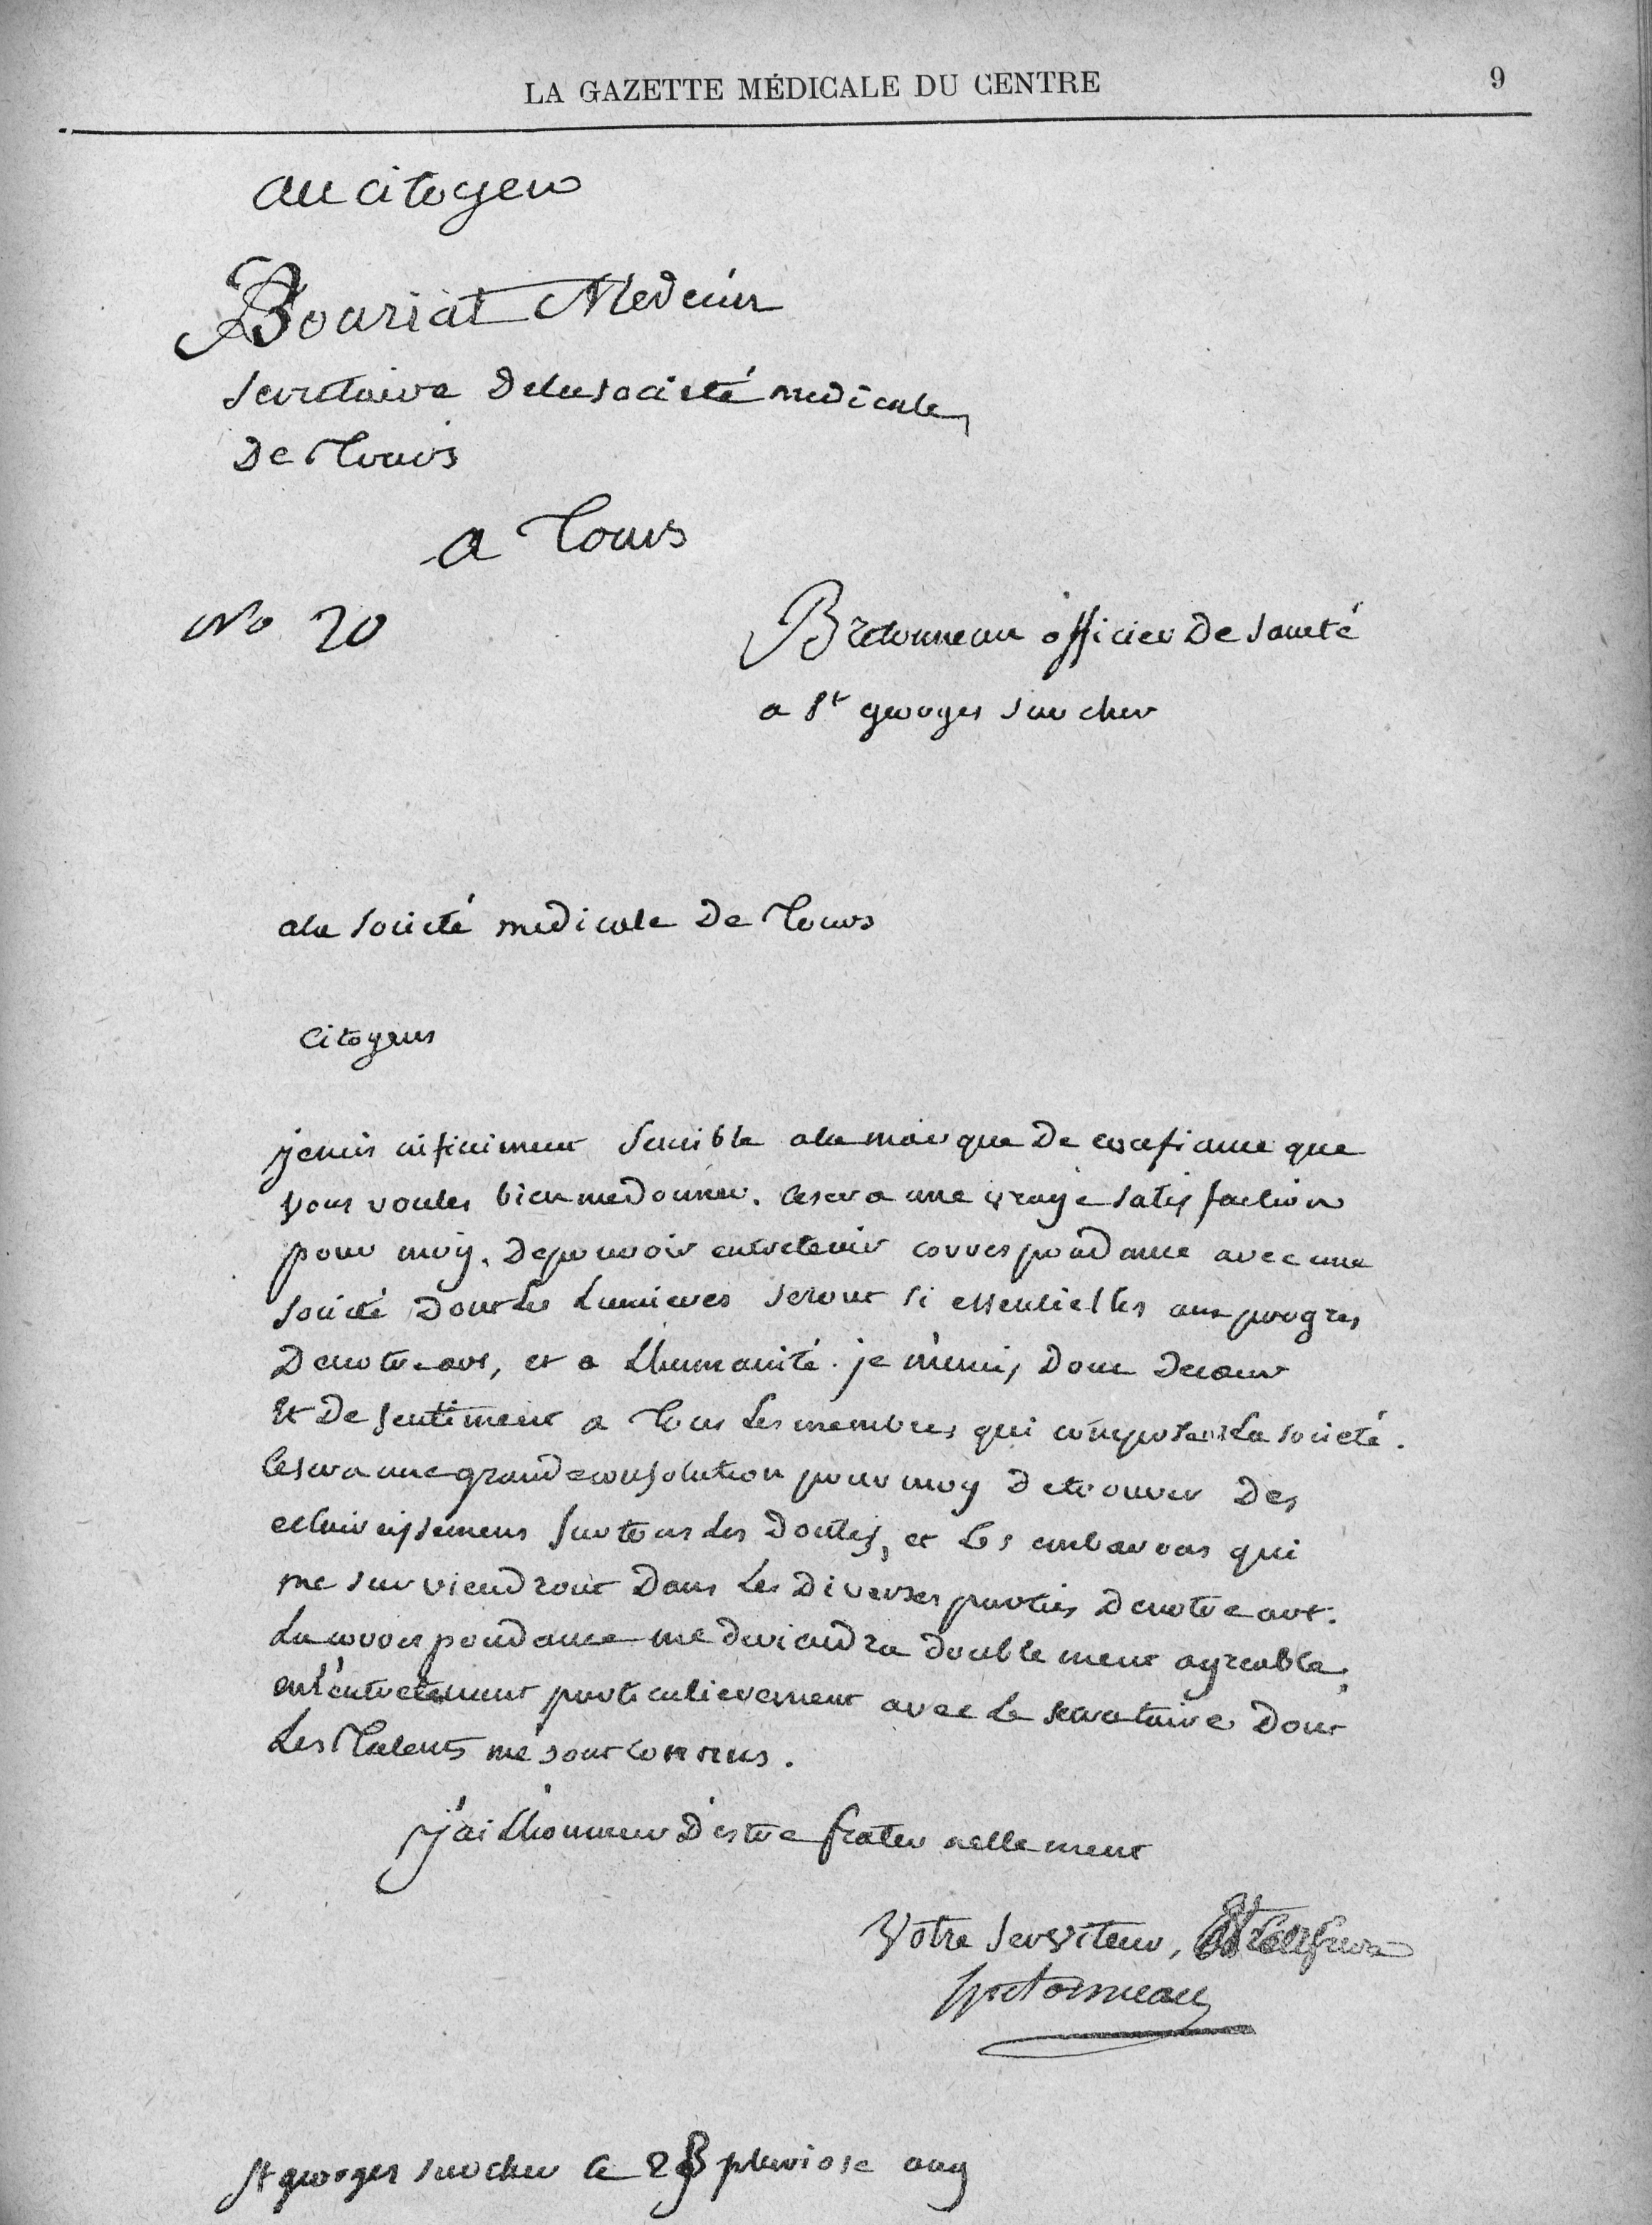 LA GAZETTE MÉDICALE DU CENTRE
9
au citoyen
Bouriat Medecin
secretaire de la societé medicale
De Tours
a Tours
No 20
Bretonneau officier De santé
a St georges sur cher
a la societé medicale De Tours
Citoyens
je suis infiniment sensible a la marque De confiance que
vous voulés bien me donner. ce sera une vraye satisfaction
pour moy. De pouvoir entretenir correspondance avec une
societé Dont Les Lumieres seront si essentielles aux progres
De notre art, et a L'humanité. je m'unis Donc De cœur
Et De sentiment a Tous Les membres qui composent La societé.
Ce sera une grande consolation pour moy De trouver Des
eclaircissemens sur tous Les Doutes, et Les embaras qui
me surviendront Dans Les Diverses parties De notre art.
La correspondance me deviendra Doublement agreable,
en L'entretenant particulierement avec Le secretaire Dont
Les Talents me sont connus.
j'ai L'honneur D'estre fraternellement
Votre serviteur, Et
Bretonneau
St georges sur cher le 28 pluviose an 9